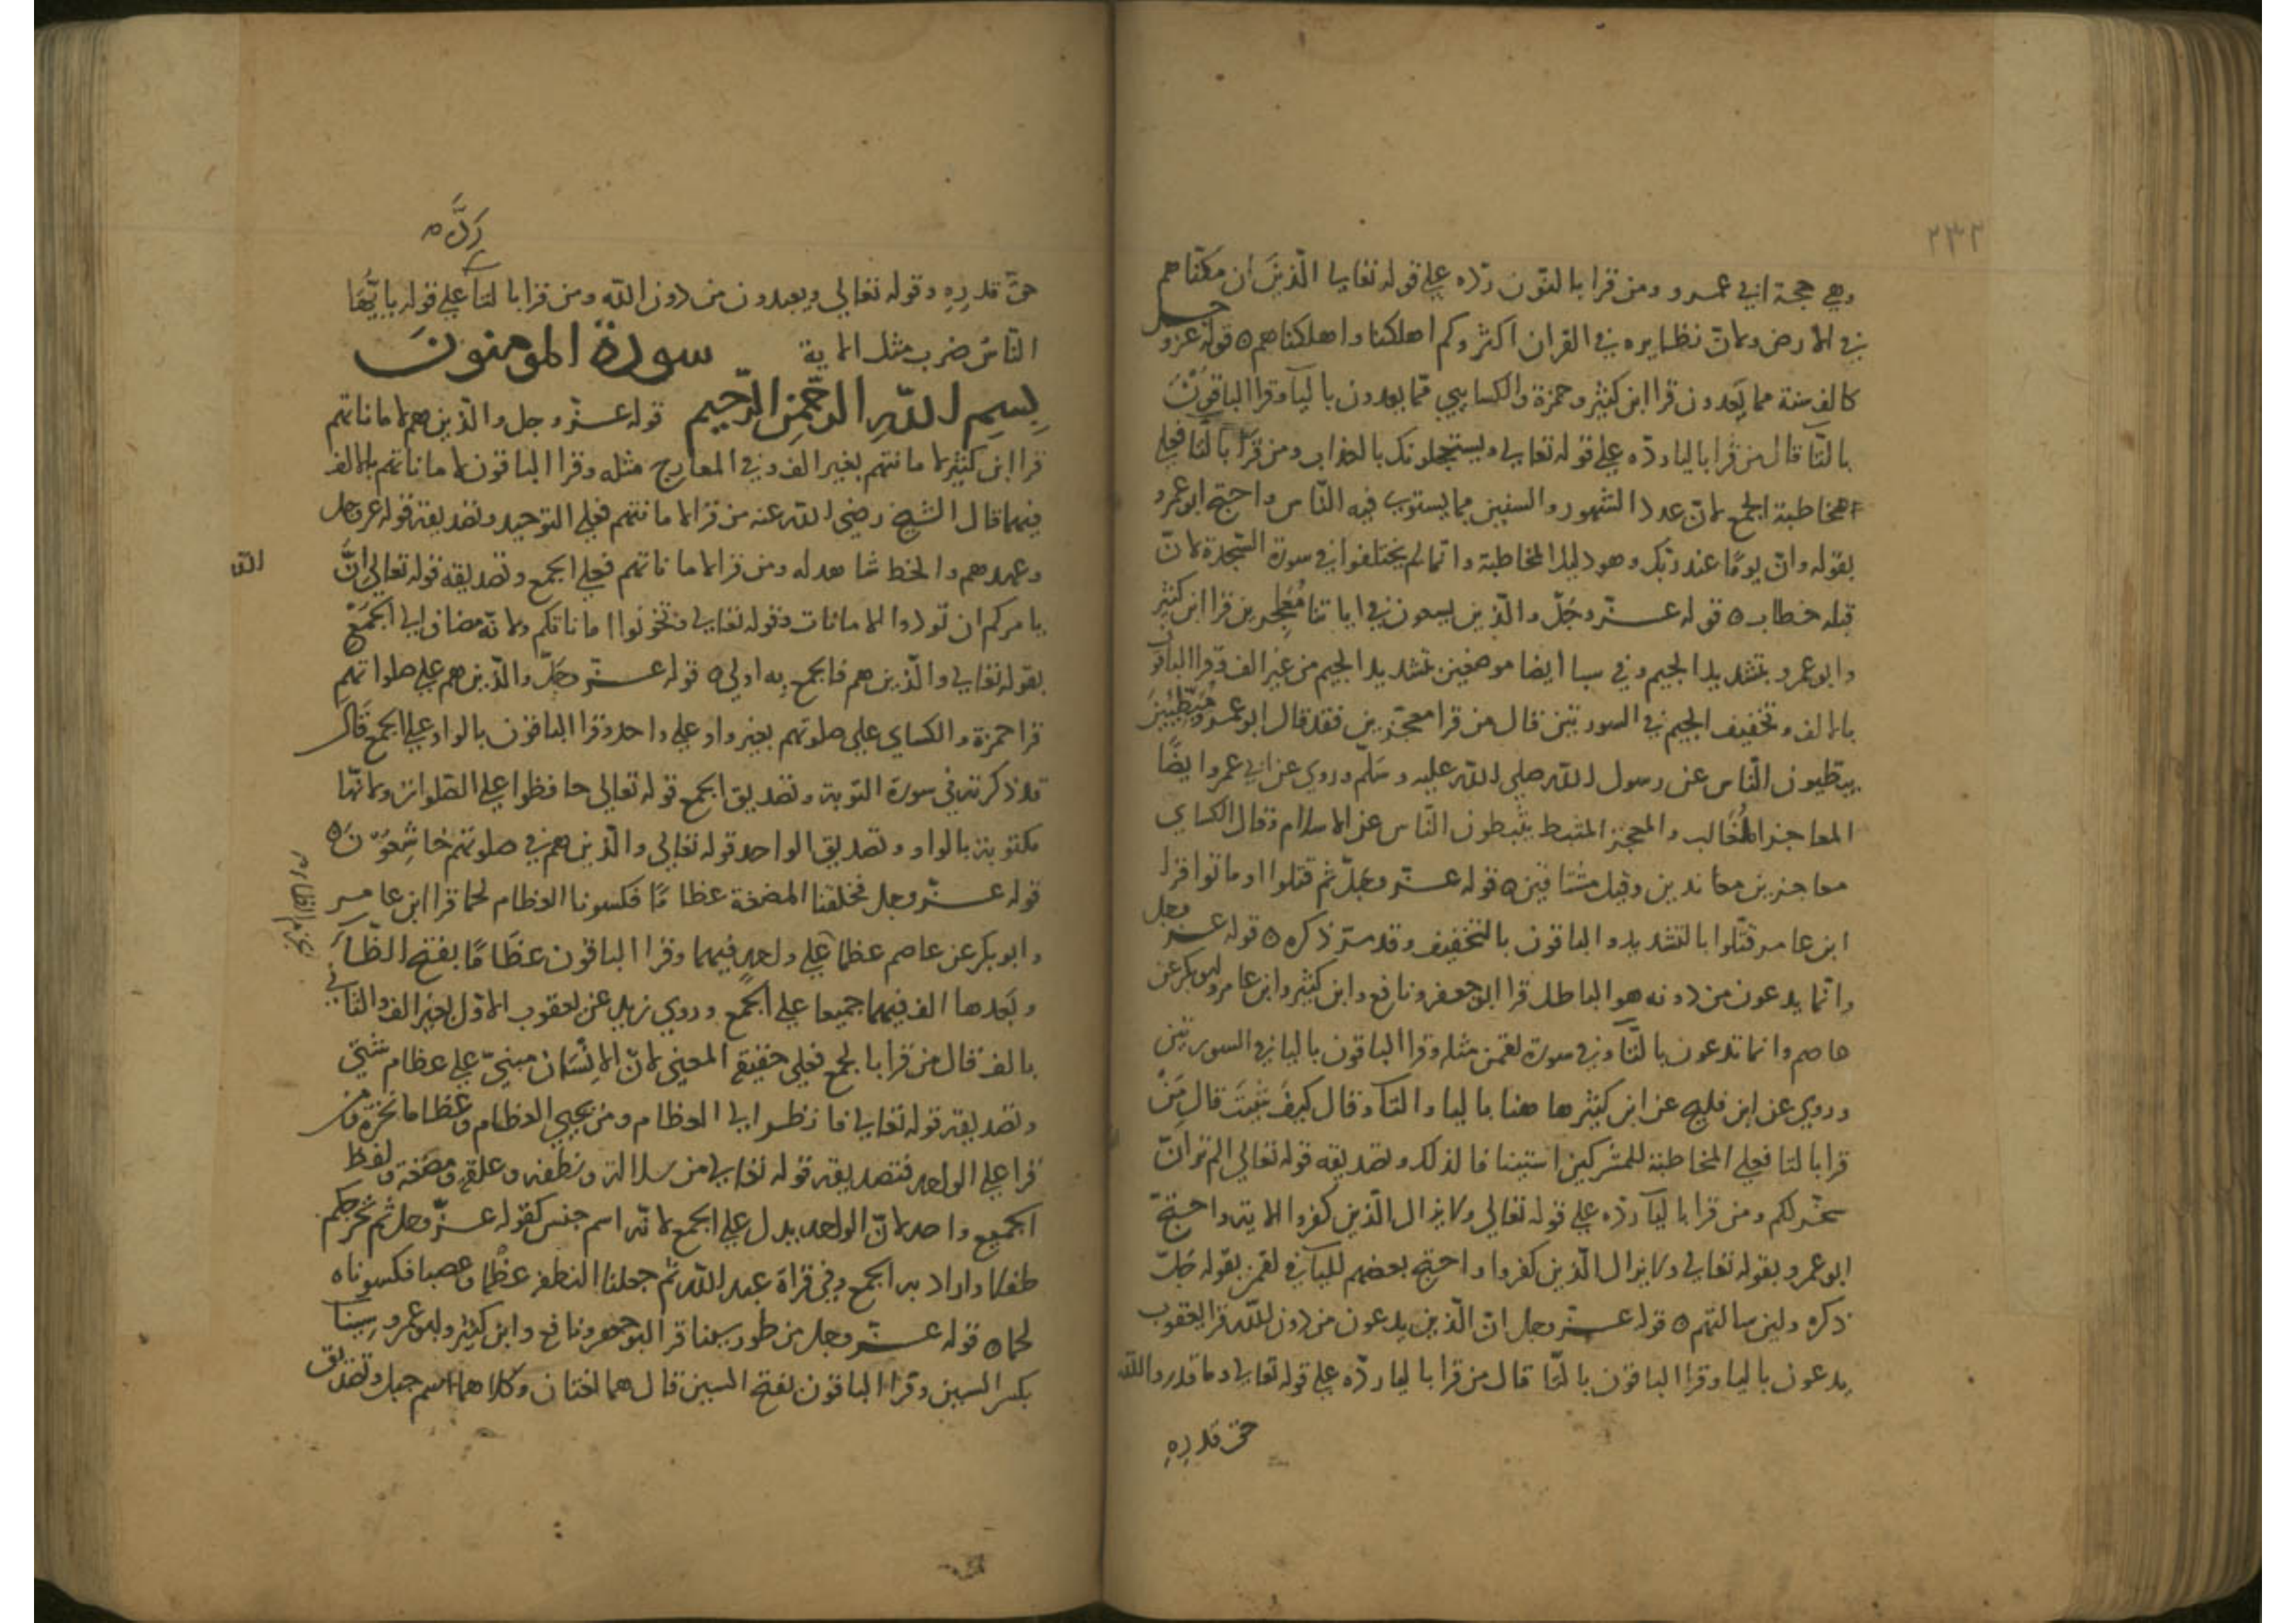 ٢٣٢
وهي حجة ابي عمرو ومن قرا بالنون ردّه علي قوله تعالي الّذين ان مكنّاهم
في الارض ولانّ نظايره في القران اكثر وكم اهلكنا واهلكناهم ه قوله عز وجل
كالف سنة مما يعدون قرا ابن كثير وحمزة والكسايي ممّا يعدون باليا وقرا الباقون
بالتّا قال من قرا باليا ردّه علي قوله تعالي ويستعجلونك بالعذاب ومن قرا بالتا فعلي
مخاطبة الجمع لانّ عدد الشهور والسنين مما يستوي فيه النّاس واحتج ابو عمرو
بقوله وانّ يومًا عند ربّك وهو دليل المخاطبة وانّما لم يختلفوا في سورة السّجدة لانّ
قبله خطاب ه قوله عزّ وجلّ والّذين يسعون في اياتنا معجزين قرا ابن كثير
وابو عمرو بتشديد الجيم وفي سبا ايضا موضعين بتشديد الجيم من غير الف وقرا الباقون
بالالف وتخفيف الجيم في السورتين قال من قرا معجّزين فقد قال ابو عمرو مبطّيين
يبطيون النّاس عن رسول الله صلي الله عليه وسلّم وروي عن ابي عمرو ايضًا
المعاجز المُغالب والمعجز المثبط يثبطون النّاس عن الاسلام وقال الكساي
معاجزين معاندين وقيل مشاقين ه قوله عزّ وجلّ ثم قتلوا او ماتوا قرا
ابن عامر قتّلوا بالتشديد والباقون بالتخفيف وقد مرّ ذكره ه قوله عز وجل
وانّما يدعون من دونه هو الباطل قرا ابو جعفر ونافع وابن كثير وابن عامر وابو بكر عن
عاصم وانما تدعون بالتّا وفي سورة لقمن مثله وقرا الباقون باليا في السورتين
وروي عن ابن فليح عن ابن كثير ها هنا باليا والتا وقال كيف شيت قال من
قرا بالتا فعلي المخاطبة للمشركين استينافا لذلك وتصديقه قوله تعالي الم تر انّ
سخّر لكم ومن قرا باليا ردّه علي قوله تعالي ولا يزال الّذين كفروا الاية واحتجّ
ابو عمرو بقوله تعالي ولا يزال الّذين كفروا واحتج بعضهم لليا في لقمن بقوله جلّ
ذكره ولين سالتهم ه قوله عزّ وجل انّ الّذين يدعون من دون الله قرا يعقوب
يدعون باليا وقرا الباقون بالتّا قال من قرا باليا ردّه علي قوله تعالي وما قدروا الله
حق قدره
حقّ قدره وقوله تعالي ويعبدون من دون الله ومن قرا بالتا ردّه علي قوله يا ايّها
النّاس ضرب مثل الاية سورة المومنون
بسم الله الرّحمن الرّحيم قوله عزّ وجل والّذين هم لاماناتهم
قرا ابن كثير لامانتهم بغير الف وفي المعارج مثله وقرا الباقون لاماناتهم بالالف
فيهما قال الشيخ رضي الله عنه من قرا لامانتهم فعلي التوحيد وتصديقه قوله عز وجل
وعهدهم والخط شاهد له ومن قرا لاماناتهم فعلي الجمع وتصديقه قوله تعالي انّ الله
يامركم ان تودوا الامانات وقوله تعالي وتخونوا اماناتكم ولانّه مضاف الي الجمع
بقوله تعالي والّذين هم فالجمع به اولي ه قوله عزّ وجلّ والّذين هم علي صلواتهم
قرا حمزة والكساي علي صلوتهم بغير واو علي واحد وقرا الباقون بالواو علي الجمع قال
قد ذكرته في سورة التّوبة وتصديق الجمع قوله تعالي حافظوا علي الصّلوات ولانّها
مكتوبة بالواو وتصديق الواحد قوله تعالي والّذين هم في صلوتهم خاشعون ه
قوله عزّ وجل فخلقنا المضغة عظامًا فكسونا العظام لحما قرا ابن عامر
وابو بكر عن عاصم عظما علي واحد فيهما وقرا الباقون عظامًا بفتح الظّا
وبعدها الف فيهما جميعا علي الجمع وروي زيد عن يعقوب الاول بغير الف والثاني
بالف قال من قرا بالجمع فعلي حقيقة المعني لانّ الانسان مبنيّ علي عظام شتّي
وتصديقه قوله تعالي فانظر الي العظام ومن يحيي العظام وعظاما نخرة ومن
قرا علي الواحد فتصديقه قوله تعالي من سلالة ونطفة وعلقة ومضغة ولفظ
الجميع واحد لانّ الواحد يدل علي الجمع لانّه اسم جنس كقوله عزّ وجل ثم نخرجكم
طفلا واراد به الجمع وفي قراة عبد الله ثم جعلنا النطفة عظما وعصبا فكسوناه
لحما ه قوله عزّ وجل من طور سينا قرا ابو جعفر ونافع وابن كثير وابو عمرو سينا
بكسر السين وقرا الباقون بفتح السين قال هما لغتان وكلاهما اسم جبل وتصديق